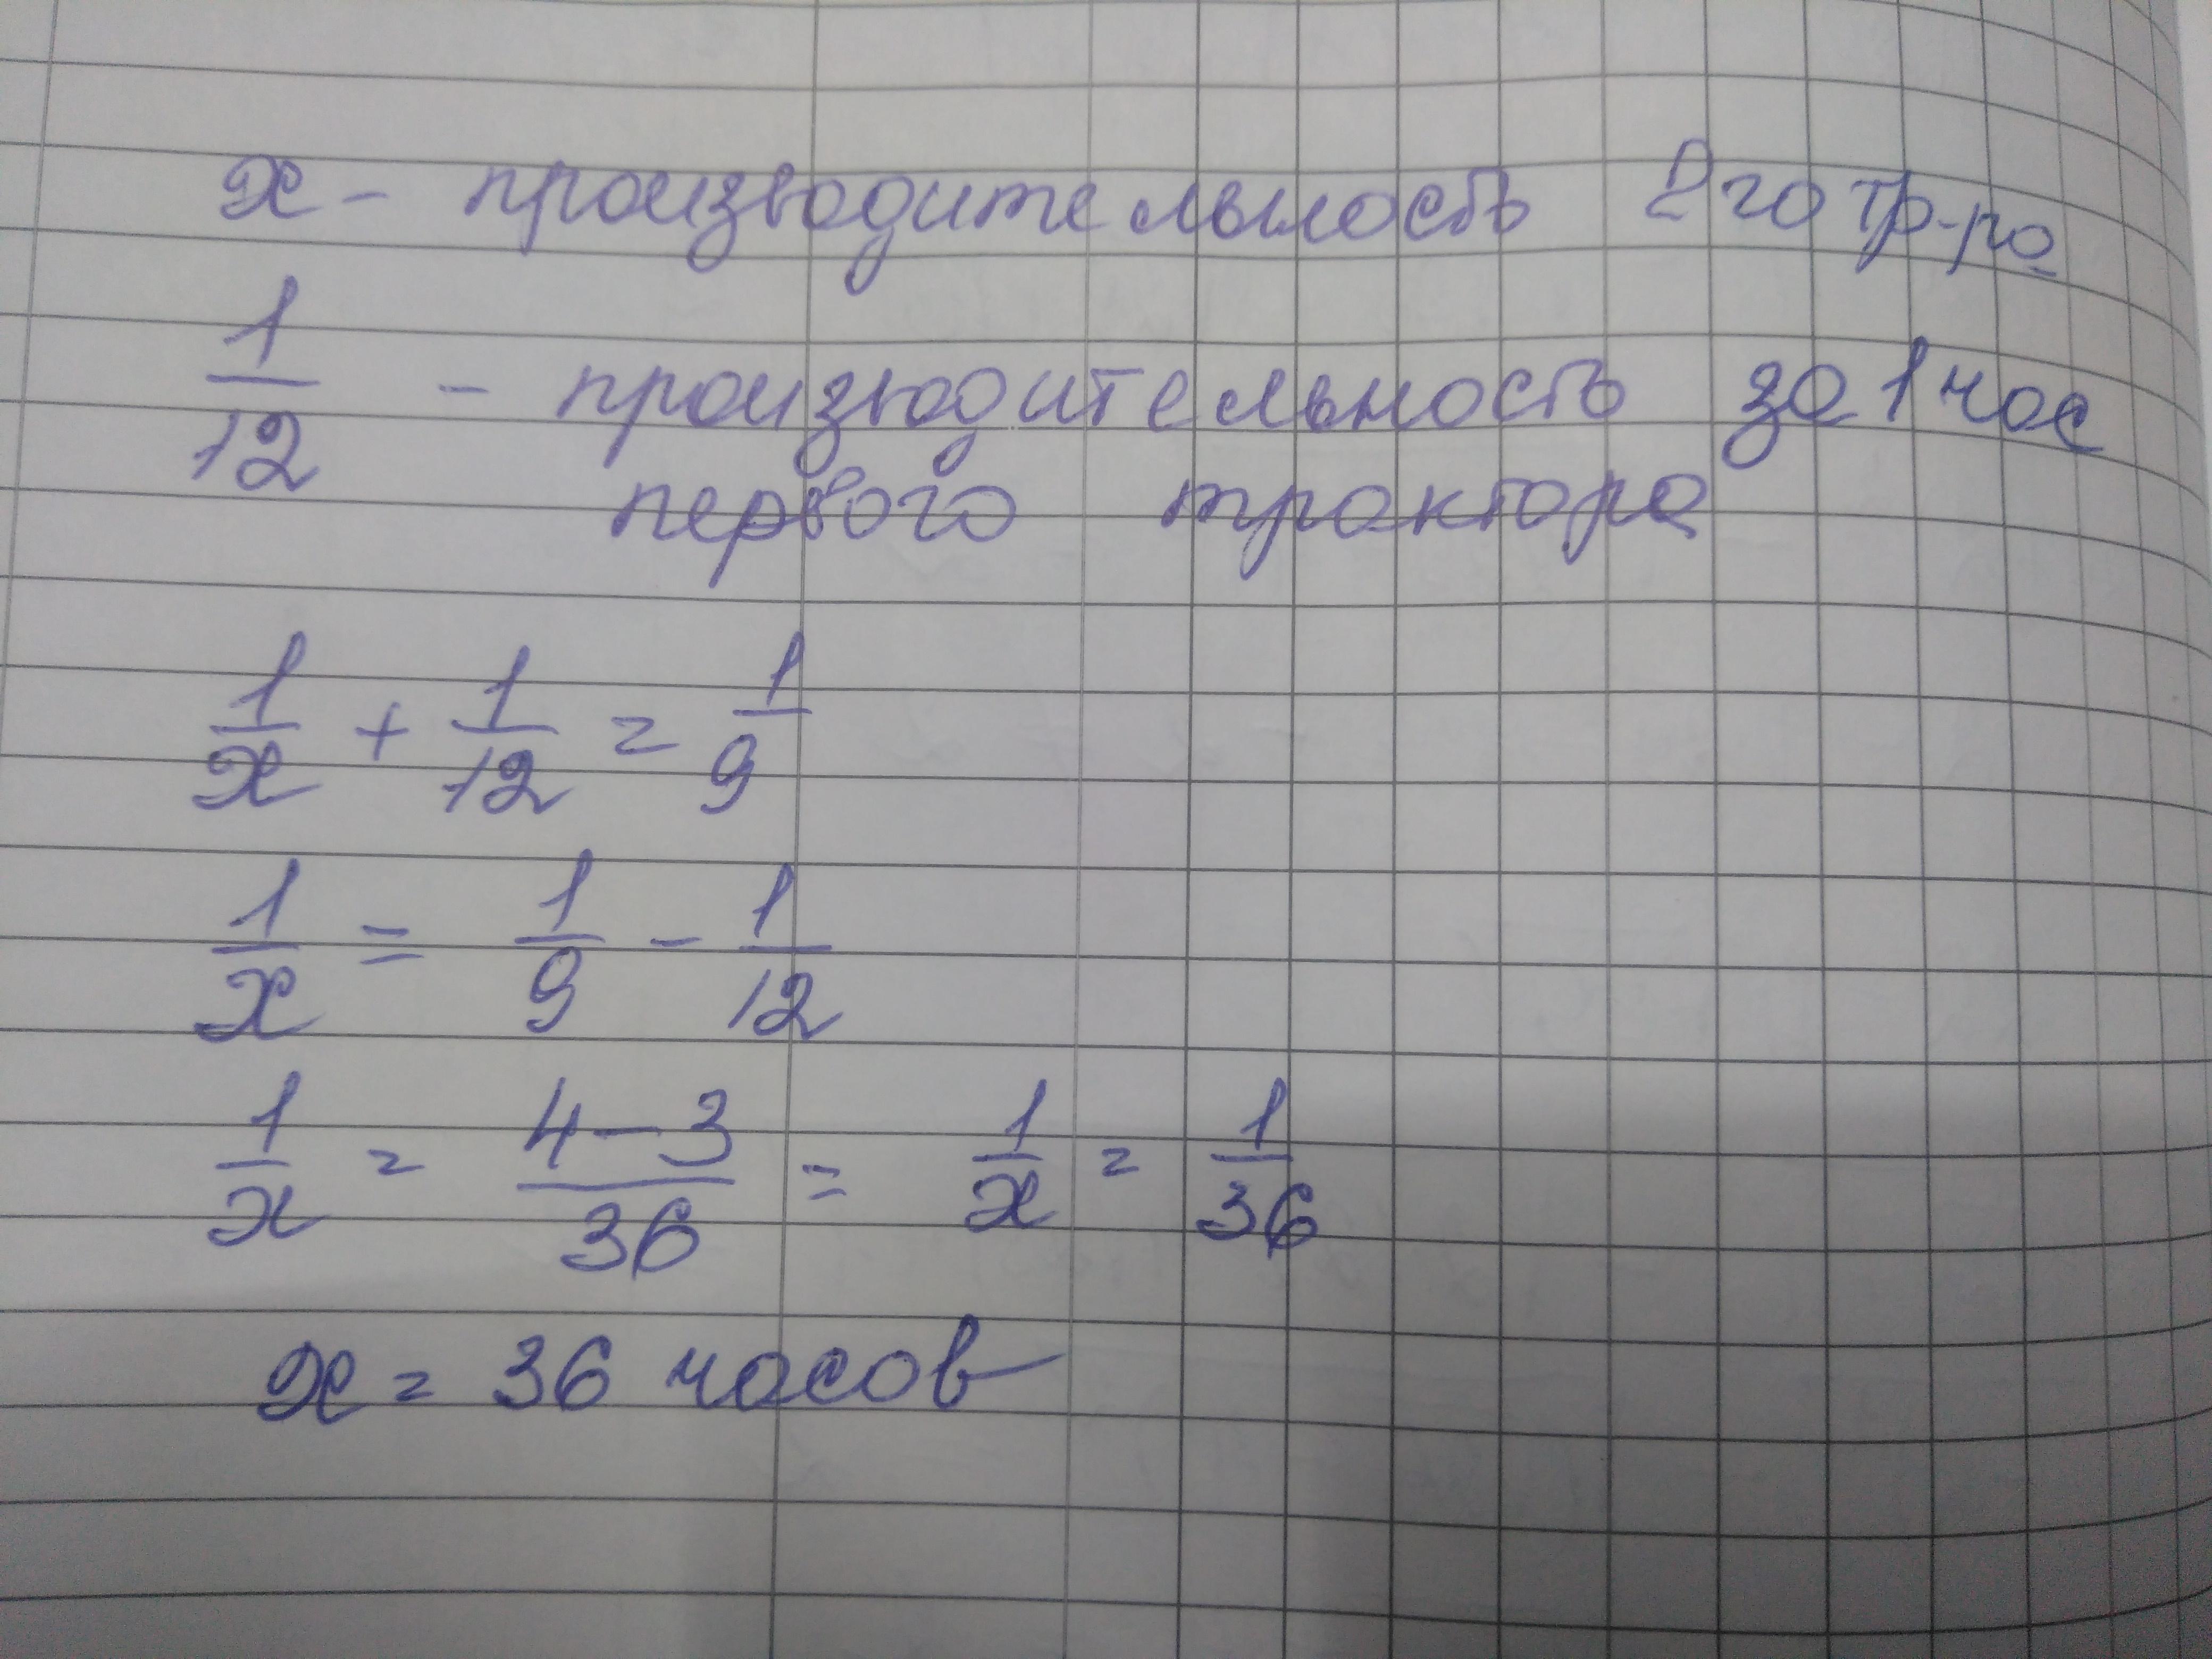 x - производительность 2го тр-ра
1/12 - производительность за 1 час
первого трактора
1/x + 1/12 = 1/9
1/x = 1/9 - 1/12
1/x = (4-3)/36 = 1/x = 1/36
x = 36 часов